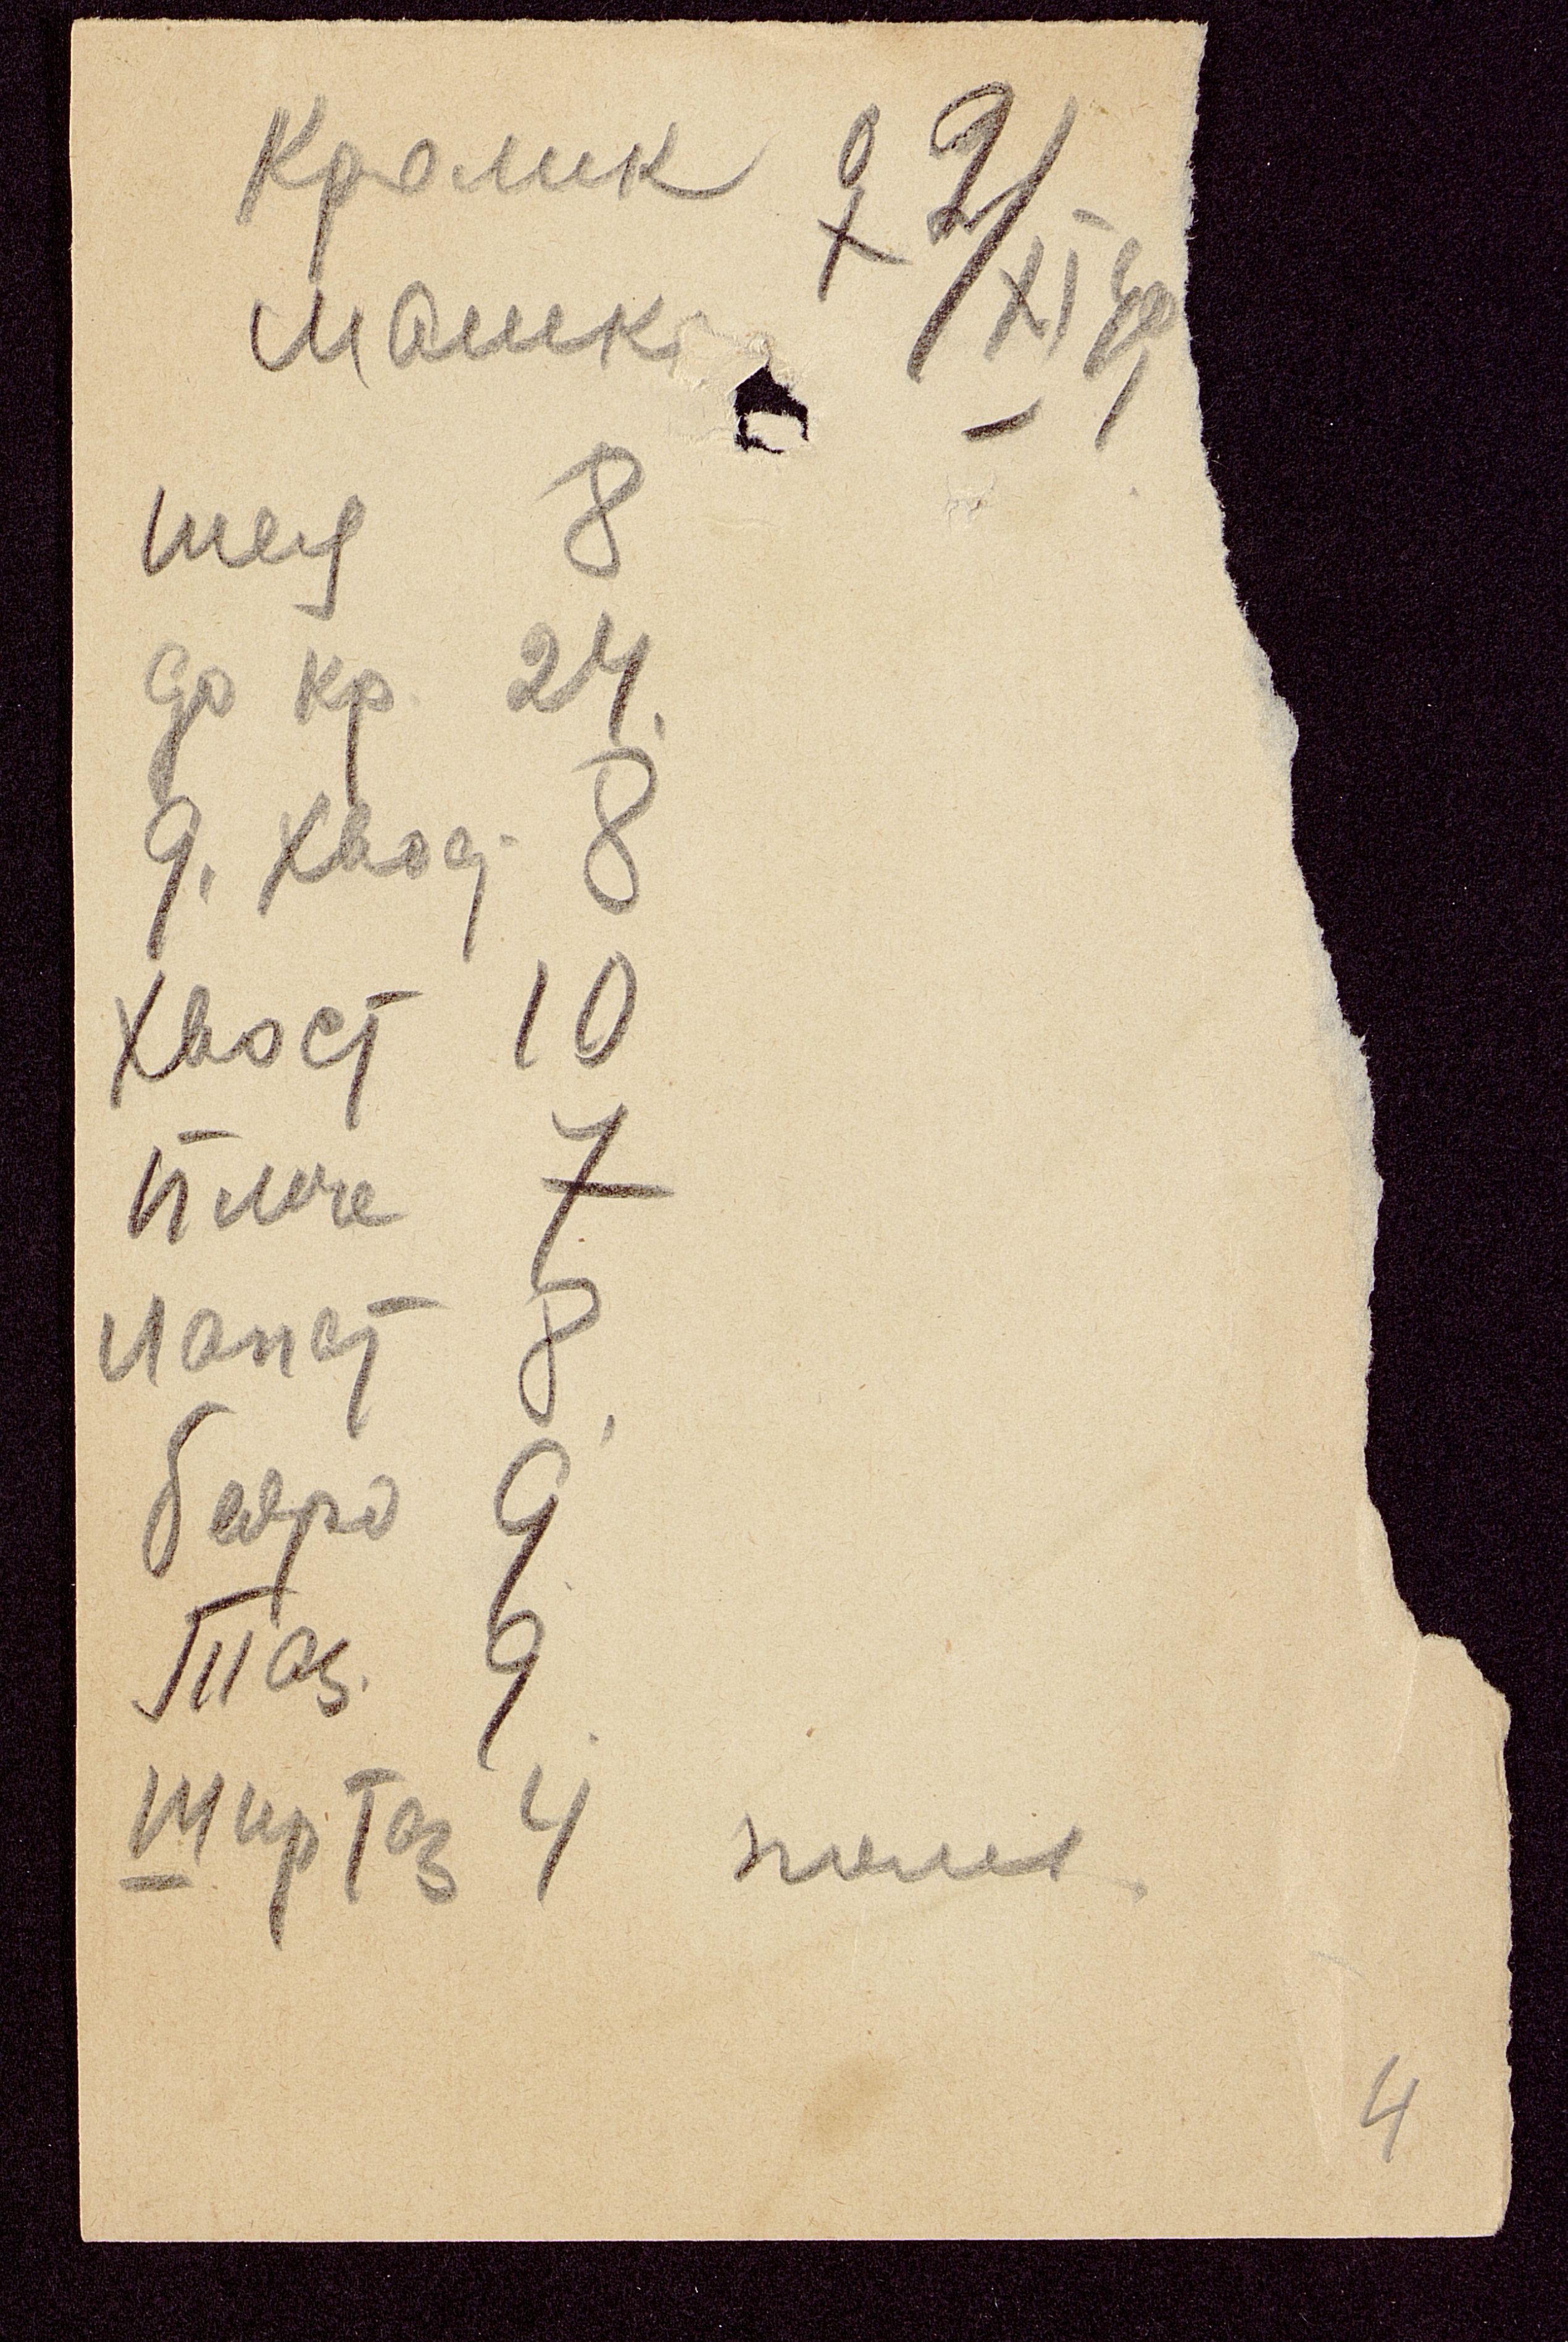 Кролик ♀ 9/XI 49
Машка
шея 8
до кр. 24.
д. хвост 8
хвост 10
Плече 7
Лопат 8
бедро 9
Таз. 9
Шир Таз 4
4